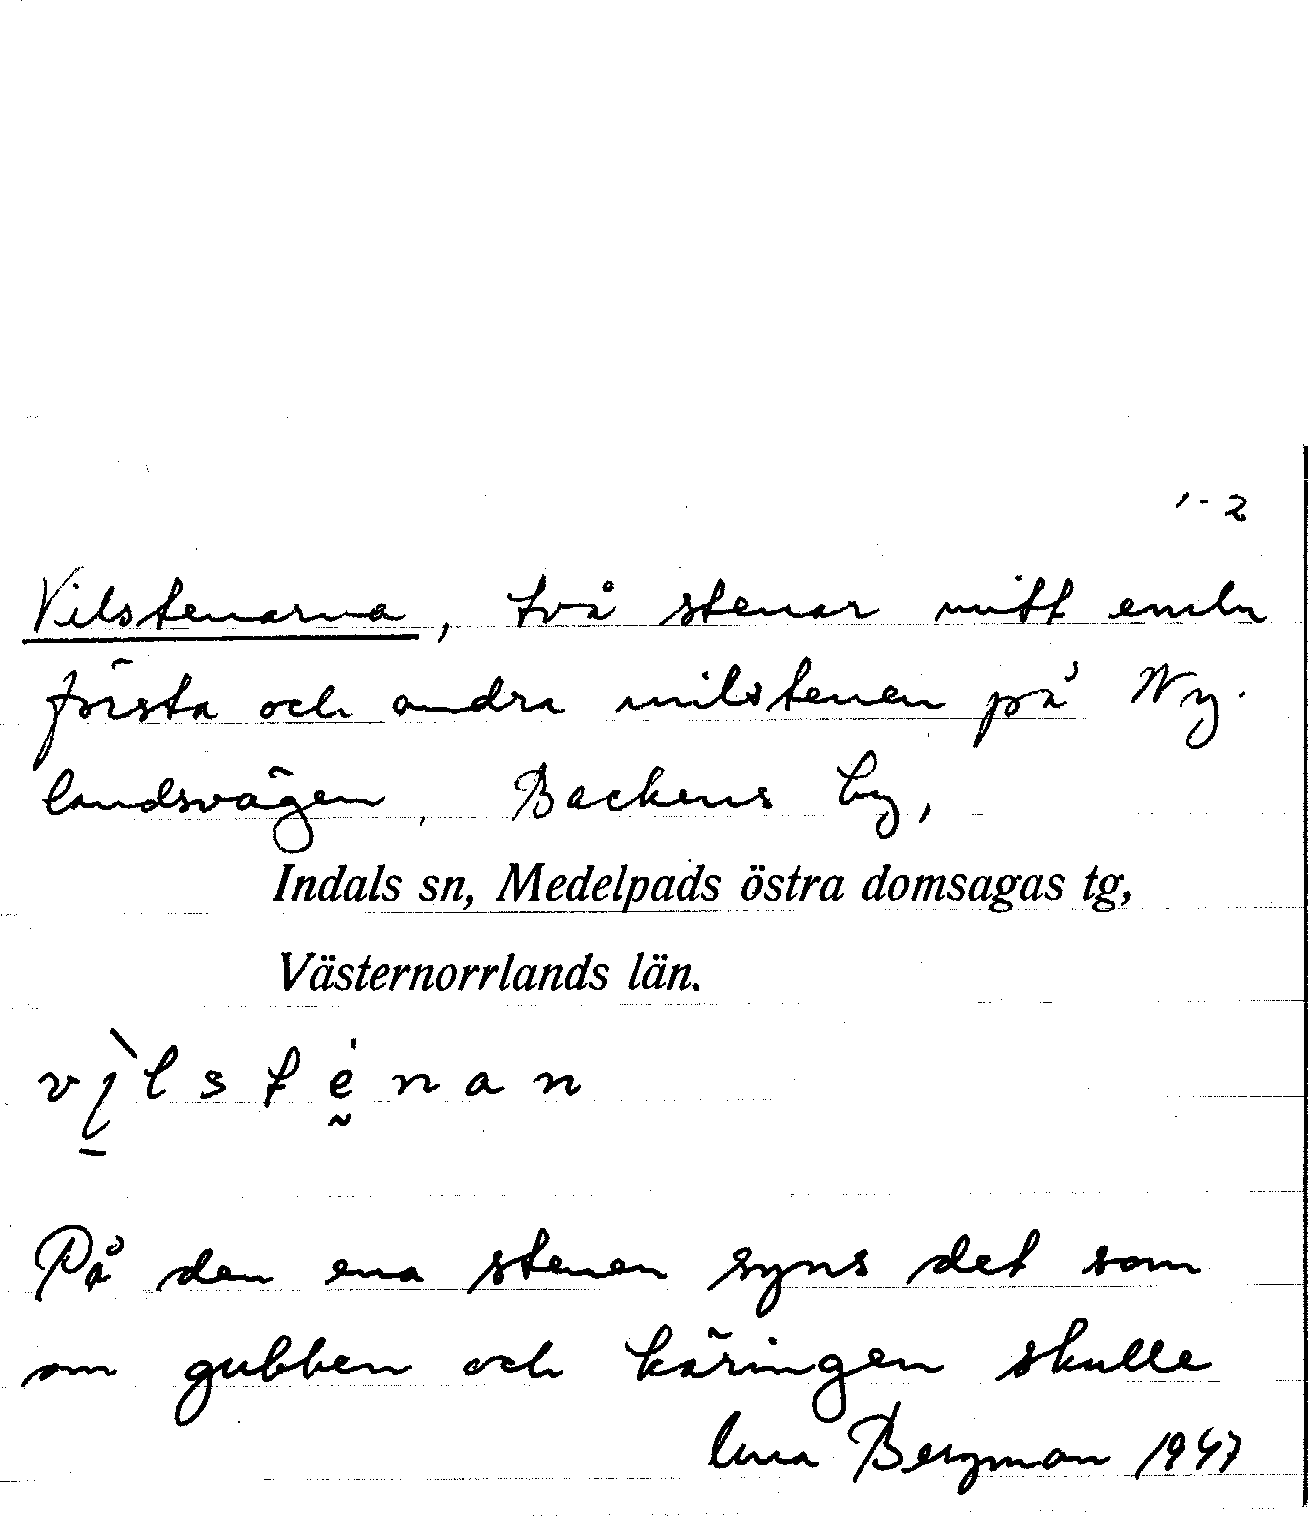 1-2
Vilstenarna, två stenar mitt emln
första och andra milstenen på Ny-
landsvägen, Backens by,
Indals sn, Medelpads östra domsagas tg,
Västernorrlands län.
vìlsténan
På den ena stenen syns det som
om gubben och käringen skulle
Bergman 1947